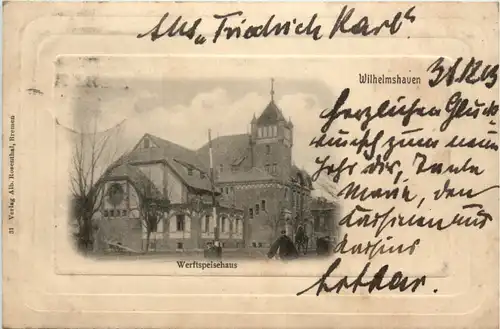 Abs. „Friedrich Karl“.
Wilhelmshaven
31.12.03
Herzlichen Glück-
wunsch zum neuen
Jahr dir, Tante
Marie, den
Cousinen und
Cousins
Lothar.
Werftspeisehaus
31 Verlag Alb. Rosenthal, Bremen